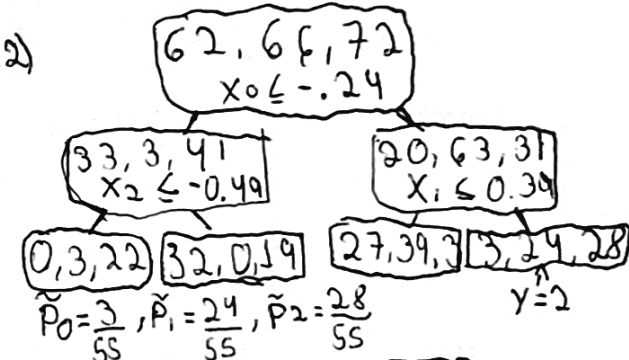 2)
62, 66, 72
x0 ≤ -.24
33, 3, 41
x2 ≤ -0.49
20, 63, 31
x1 ≤ 0.39
0, 3, 22
32, 0, 19
27, 39, 3
3, 24, 28
p̃0 = 3/55, p̃1 = 24/55, p̃2 = 28/55
y = 2